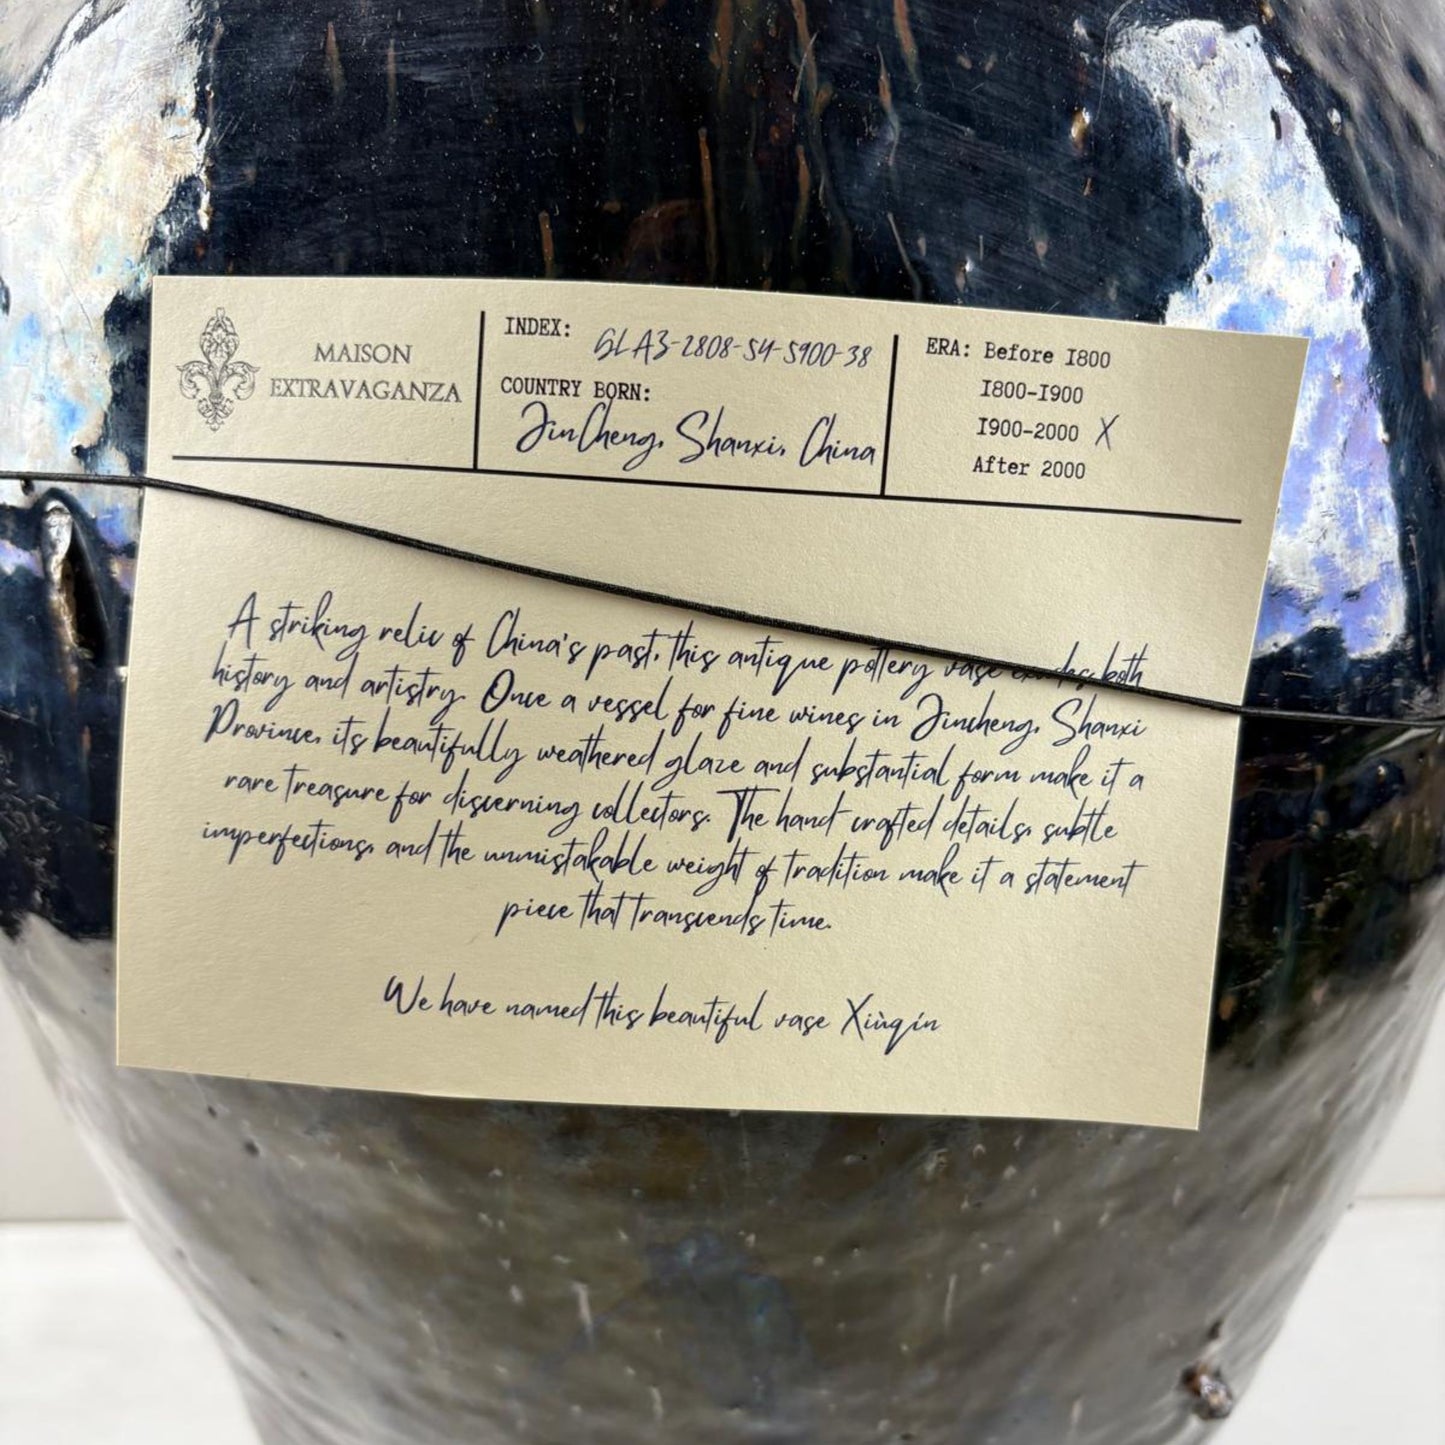 MAISON
EXTRAVAGANZA
INDEX: GLA3-2808-54-5900-38
COUNTRY BORN:
JinCheng, Shanxi, China
ERA: Before 1800
1800-1900
1900-2000 X
After 2000
A striking relic of China's past, this antique pottery vase exudes both
history and artistry. Once a vessel for fine wines in Jincheng, Shanxi
Province, its beautifully weathered glaze and substantial form make it a
rare treasure for discerning collectors. The hand-crafted details, subtle
imperfections, and the unmistakable weight of tradition make it a statement
piece that transcends time.
We have named this beautiful vase Xiùqín